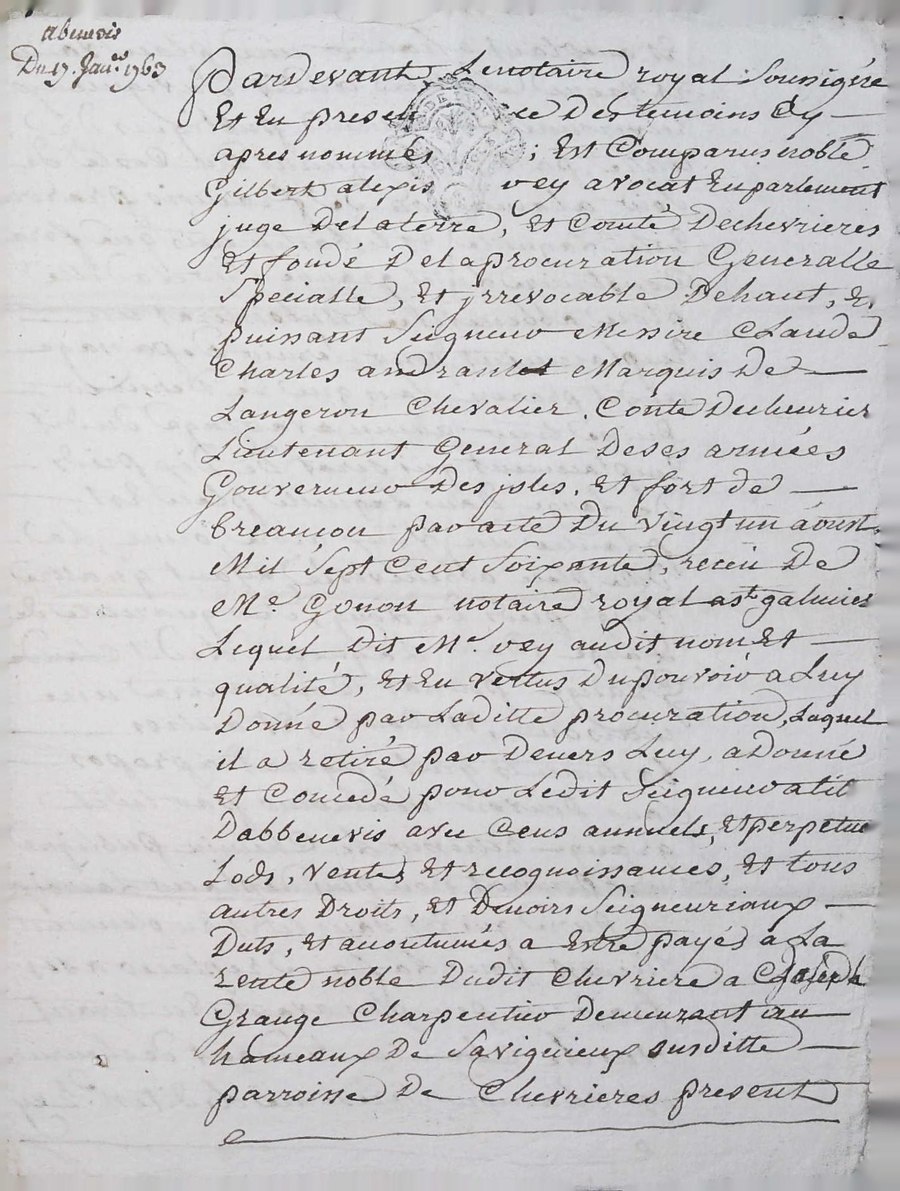 abenevis
Du 17. Janer. 1763
Pardevant Le notaire royal Soussigné
Et En presence Des temoins Cy
apres nommés ; Est Comparus noble
Gilbert alexis vey avocat En parlement
juge De La terre, Et Comté De chevrieres
Et fondé De La procuration Generalle
Specialle, Et jrrevocable De haut, &
puissant Seigneur Messire Claude
Charles andrault Marquis De
Langeron Chevalier, Conte De cheurier
Lieutenant General De ses armées
Gouverneur Des jsles, Et fort de
breançon par acte Du vingt un àoust
Mil Sept Cent Soixante, receu De
Me. Gonon notaire royal a st galmier
Lequel Dit Me. vey au dit nom Et
qualité, Et En vertus Du pouvoir a Luy
Donné par La ditte procuration, Laquel
il a retiré par Devers Luy, a Donné
Et Concedé pour Le dit Seigneur a til
D'abbenevis avec Cens annuel, Et perpetue
Lods, ventes, Et recognoissances, Et tous
autres Droits, Et Devoirs Seigneuriaux
Duts, Et acoutumés a Estre payés a La
rente noble Du dit Chevriere a Joseph
Grange Charpentier Demeurant au
hameaux De Savignieux susditte
parroisse De Chevrieres present